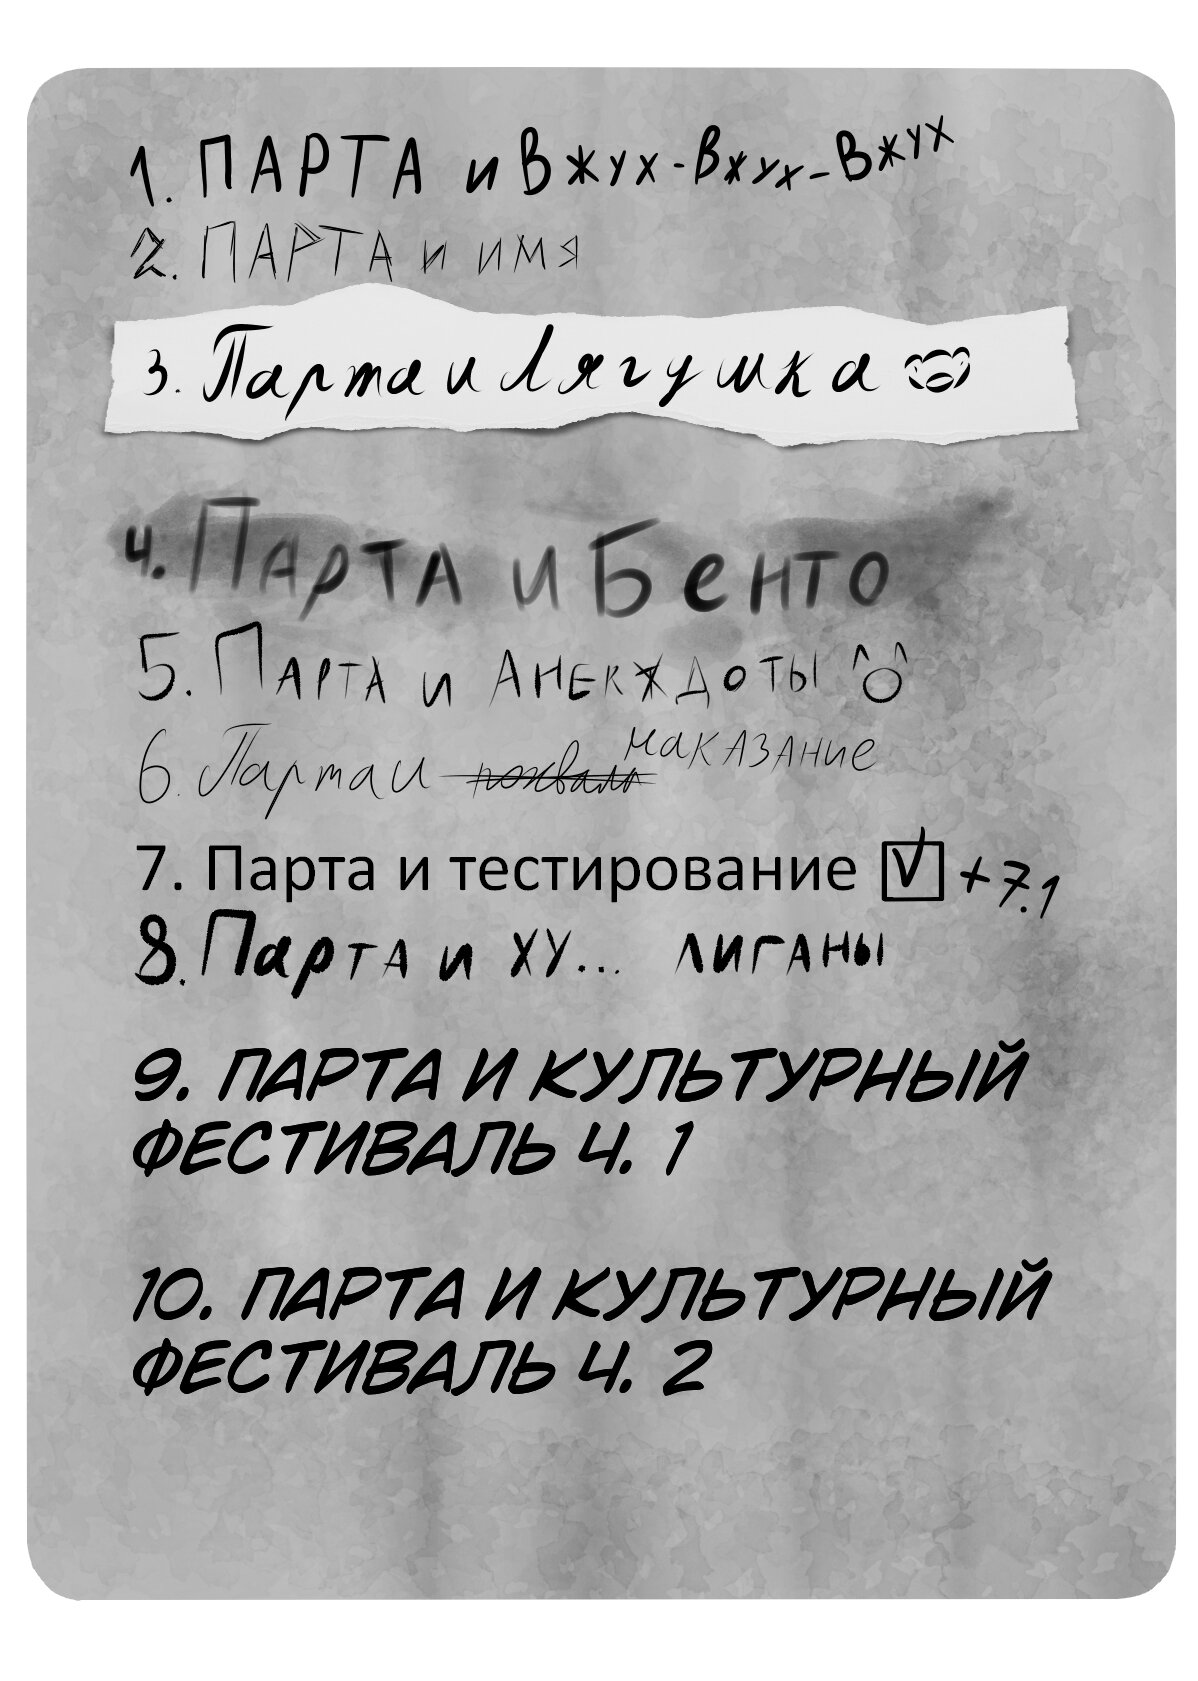 1. ПАРТА и Вжух-Вжух-Вжух
2. ПАРТА и имя
3. Парта и Лягушка
4. Парта и Бенто
5. Парта и Анекждоты
6. Парта и похвала наказание
7. Парта и тестирование +7.1
8. Парта и ху... лиганы
9. ПАРТА И КУЛЬТУРНЫЙ
ФЕСТИВАЛЬ Ч. 1
10. ПАРТА И КУЛЬТУРНЫЙ
ФЕСТИВАЛЬ Ч. 2